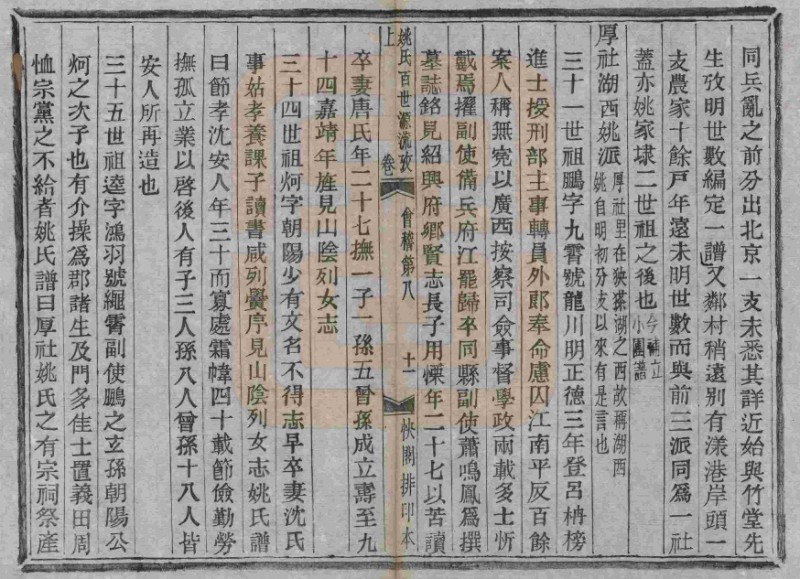 同兵亂之前分出北京一支未悉其詳近始與竹堂先
生攷明世數編定一譜又鄰村稍遠別有漾港岸頭一
支農家十餘戸年遠未明世數而與前三派同爲一社
蓋亦姚家埭二世祖之後也今補立小圖譜
厚社湖西姚派厚社里在狹㺐湖之西故稱湖西姚自明初分支以來有是言也
三十一世祖鵬字九霄號龍川明正德三年登呂柟榜
進士授刑部主事轉員外郎奉命慮囚江南平反百餘
案人稱無寃以廣西按察司僉事督學政兩載多士忻
戴焉擢副使備兵府江罷歸卒同縣副使蕭鳴鳳爲撰
墓誌銘見紹興府鄉賢志長子用慄年二十七以苦讀
姚氏百世源流攷 卷上 會稽第八 十一 快閣排印本
卒妻唐氏年二十七撫一子一孫五曾孫成立壽至九
十四嘉靖年旌見山陰列女志
三十四世祖炣字朝陽少有文名不得志早卒妻沈氏
事姑孝養課子讀書咸列黌序見山陰列女志姚氏譜
曰節孝沈安人年三十而寡處霜幃四十載節儉勤勞
撫孤立業以啓後人有子三人孫八人曾孫十八人皆
安人所再造也
三十五世祖逵字鴻羽號繩霄副使鵬之玄孫朝陽公
炣之次子也有介操爲郡諸生及門多佳士置義田周
恤宗黨之不給者姚氏譜曰厚社姚氏之有宗祠祭產